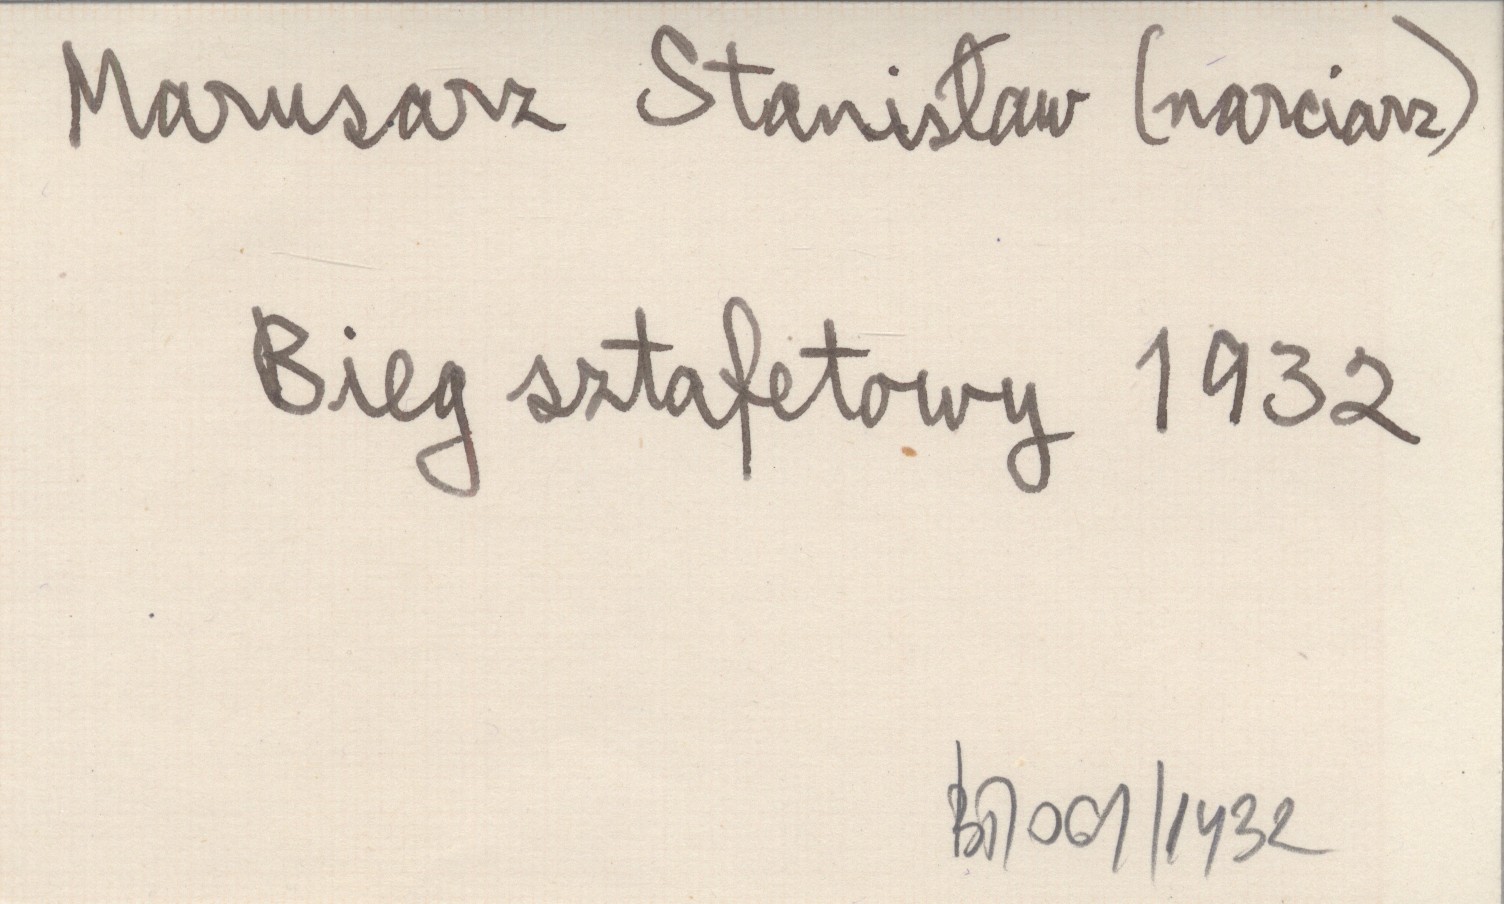 Marusarz Stanisław (narciarz)
Bieg sztafetowy 1932